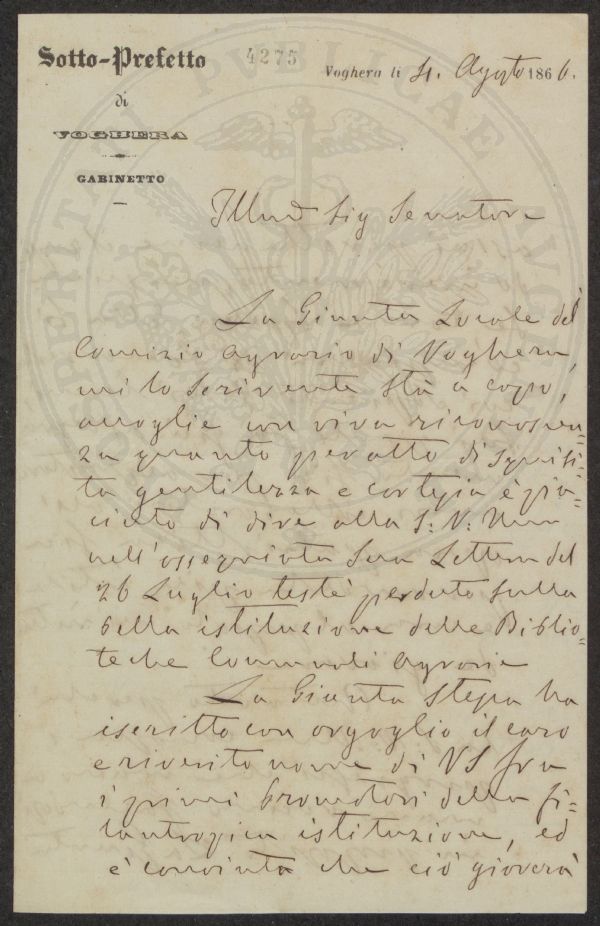 Sotto-Prefetto
di
VOGHERA
GABINETTO
4275
Voghera li 4. Agosto 1866.
Sig Senatore
La Giunta Locale del
Comizio Agrario di Voghera,
lo Scrivente stà a capo,
accoglie con viva riconoscen-
za quanto per atto di squisi-
ta gentilezza e cortesia è pia-
ciuto di dire alla S: V:
nell'ossequiata Sua Lettera del
26 Luglio testè sulla
bella istituzione delle Biblio-
teche Comunali Agrarie
La Giunta stessa ha
iscritto con orgoglio il caro
e riverito nome di VS fra
i primi Promotori della fi-
lantropica istituzione, ed
è convinta che ciò gioverà